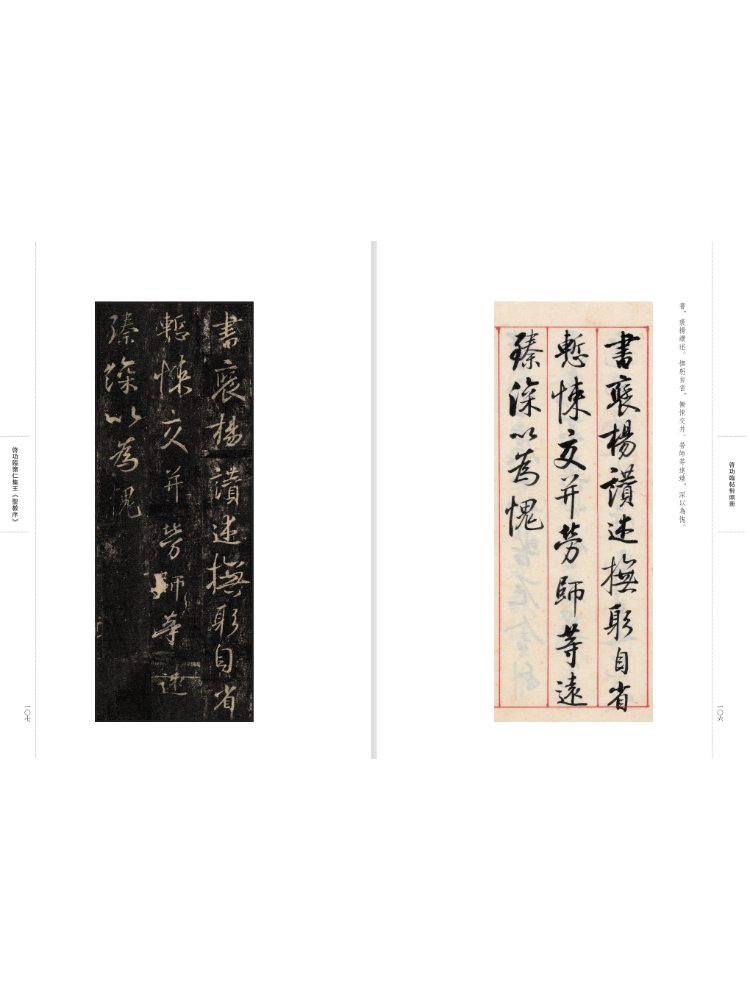 啓功臨帖對照冊
一〇六
書。褒揚讚述。撫躬自省。慙悚交并。勞師等遠臻。深以為愧。
書褒揚讚述撫躬自省
慙悚交并勞師等遠
臻深以為愧
書褒揚讚述撫躬自省
慙悚交并勞師等遠
臻深以為愧
啓功臨懷仁集王《聖教序》
一〇七